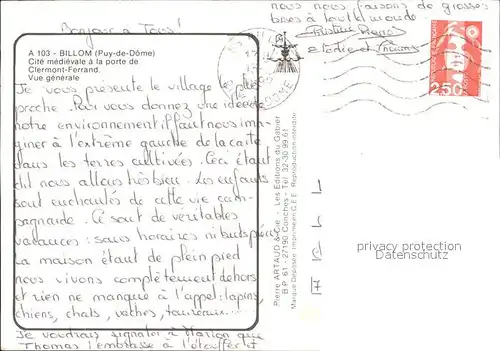 Bonjour à Tous!
A 103 - BILLOM (Puy-de-Dôme)
Cité médiévale à la porte de
Clermont-Ferrand.
Vue générale
Je vous présente le village le plus
proche. Pour vous donnez une idée de
notre environnement il faut nous ima
giner à l'extrême gauche de la carte
dans les terres cultivées. Ceci étant
dit nous allons très bien. Les enfants
sont enchantés de cette vie cam-
pagnarde. Ce sont de véritables
vacances: sans horaires ni buts précis
La maison étant de plein pied
nous vivons complètement dehors
et rien ne manque à l'appel: lapins,
chiens, chats, vaches, taureaux...
Je voudrais signaler à Marion que
Thomas l'embrasse à l'étouffer et
nous nous faisons de grosses
bises à tout le monde
Christine Pierre
Elodie et Thomas
2,50
Pierre ARTAUD & Cie - Les Editions du Gabier
B.P. 61 - 27190 Conches - Tél. 32-30 99 61
Marque Déposée Imprimé en C.E.E. Reproduction interdite
privacy protection
Datenschutz